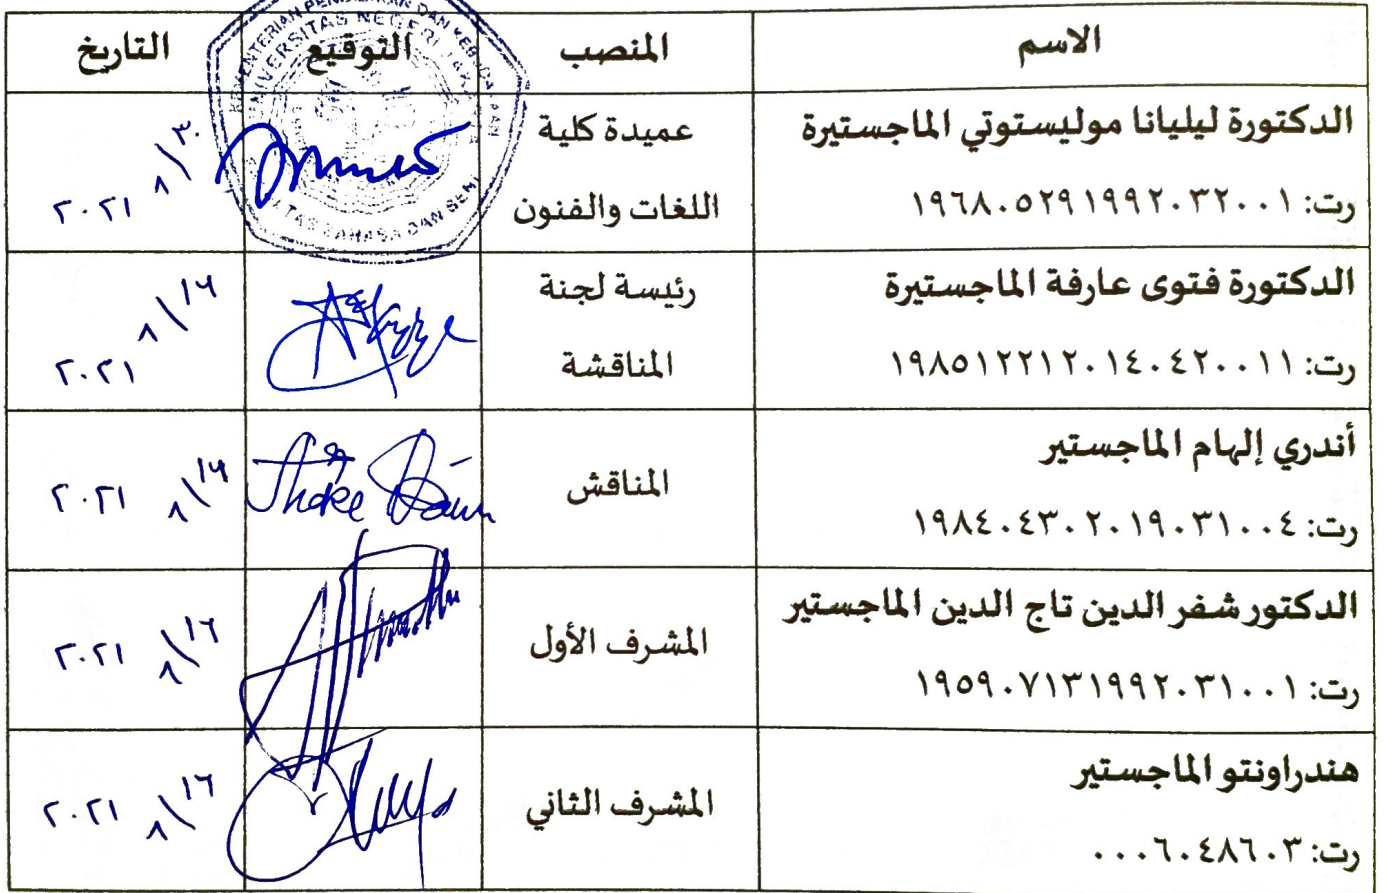 الاسم المنصب التوقيع التاريخ
الدكتورة ليليانا موليستوتي الماجستيرة
رت: ١٩٦٨٠٥٢٩١٩٩٢٠٣٢٠٠١
عميدة كلية
اللغات والفنون
٣٠/٨
٢٠٢١
الدكتورة فتوى عارفة الماجستيرة
رت: ١٩٨٥١٢٢١٢٠١٤٠٤٢٠٠١١
رئيسة لجنة
المناقشة
١٦/٨
٢٠٢١
أندري إلهام الماجستير
رت: ١٩٨٤٠٤٣٠٢٠١٩٠٣١٠٠٤
المناقش
١٦/٨ ٢٠٢١
الدكتور شفر الدين تاج الدين الماجستير
رت: ١٩٥٩٠٧١٣١٩٩٢٠٣١٠٠١
المشرف الأول
١٦/٨ ٢٠٢١
هندراونتو الماجستير
رت: ٠٠٠٦٠٤٨٦٠٣
المشرف الثاني
١٦/٨ ٢٠٢١
UNIVERSITAS NEGERI